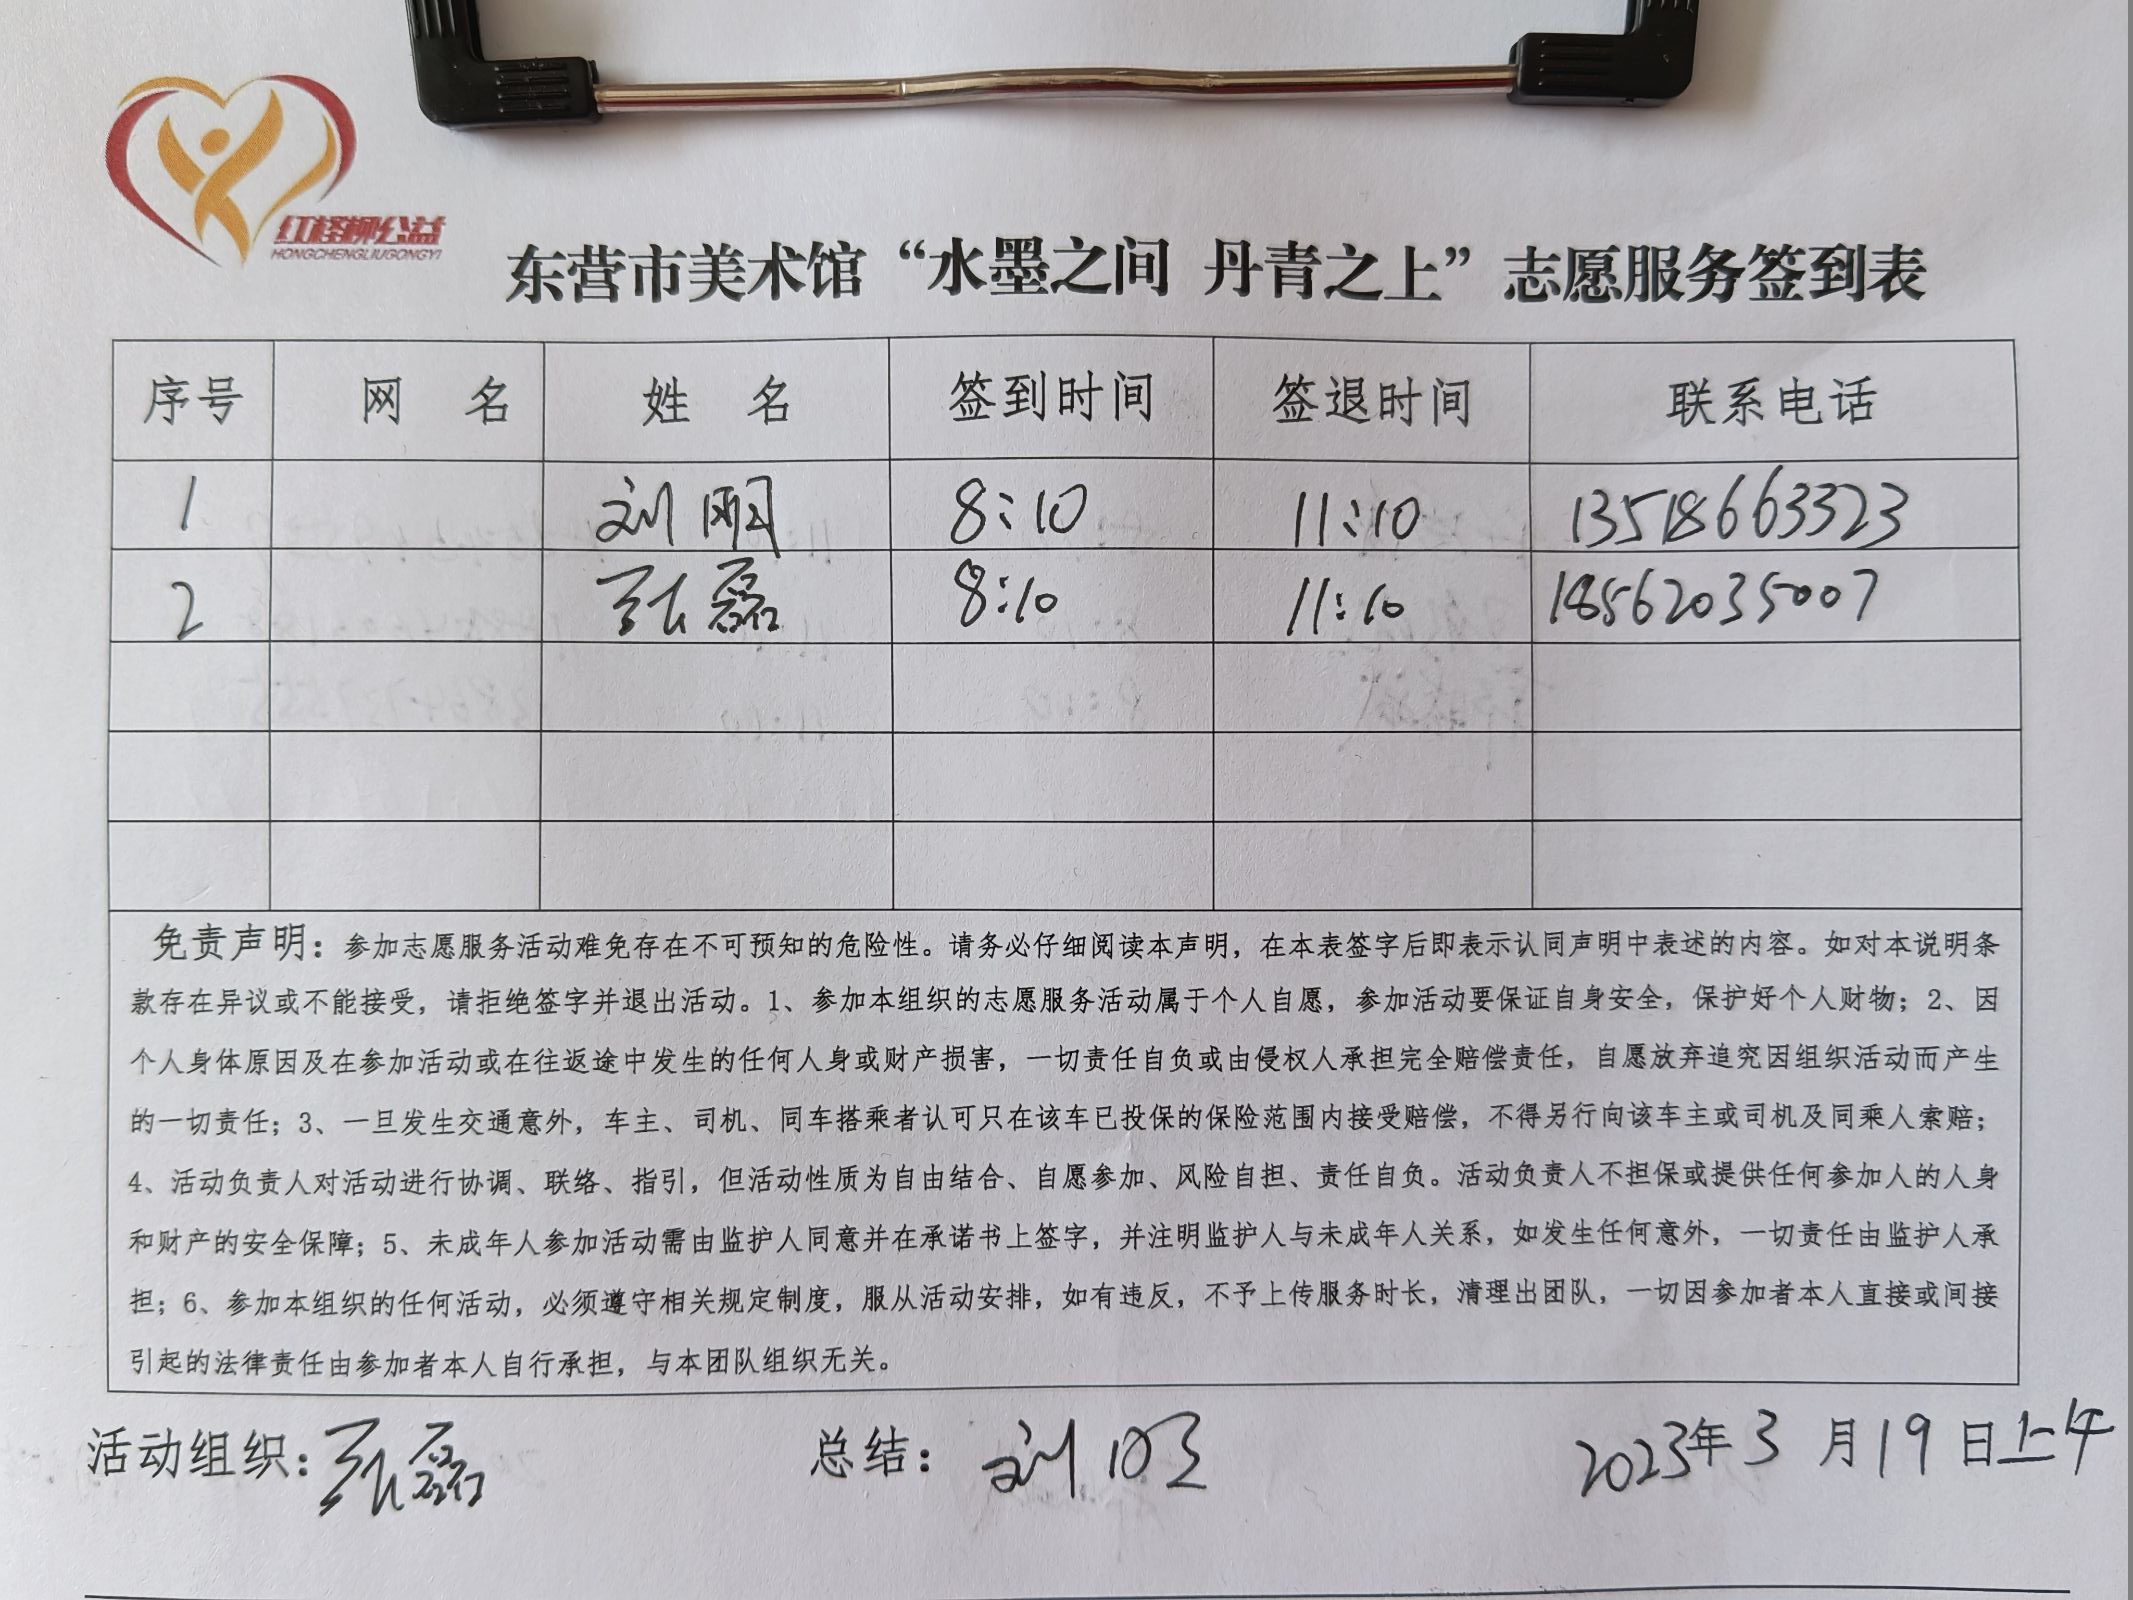 红柽柳公益
HONGCHENGLIUGONGYI
东营市美术馆“水墨之间 丹青之上”志愿服务签到表
序号 网 名 姓 名 签到时间 签退时间 联系电话
1 刘明 8:10 11:10 13518663323
2 张磊 8:10 11:10 18562035007
免责声明：参加志愿服务活动难免存在不可预知的危险性。请务必仔细阅读本声明，在本表签字后即表示认同声明中表述的内容。如对本说明条
款存在异议或不能接受，请拒绝签字并退出活动。1、参加本组织的志愿服务活动属于个人自愿，参加活动要保证自身安全，保护好个人财物；2、因
个人身体原因及在参加活动或在往返途中发生的任何人身或财产损害，一切责任自负或由侵权人承担完全赔偿责任，自愿放弃追究因组织活动而产生
的一切责任；3、一旦发生交通意外，车主、司机、同车搭乘者认可只在该车已投保的保险范围内接受赔偿，不得另行向该车主或司机及同乘人索赔；
4、活动负责人对活动进行协调、联络、指引，但活动性质为自由结合、自愿参加、风险自担、责任自负。活动负责人不担保或提供任何参加人的人身
和财产的安全保障；5、未成年人参加活动需由监护人同意并在承诺书上签字，并注明监护人与未成年人关系，如发生任何意外，一切责任由监护人承
担；6、参加本组织的任何活动，必须遵守相关规定制度，服从活动安排，如有违反，不予上传服务时长，清理出团队，一切因参加者本人直接或间接
引起的法律责任由参加者本人自行承担，与本团队组织无关。
活动组织：张磊 总结：刘明 2023年3月19日上午